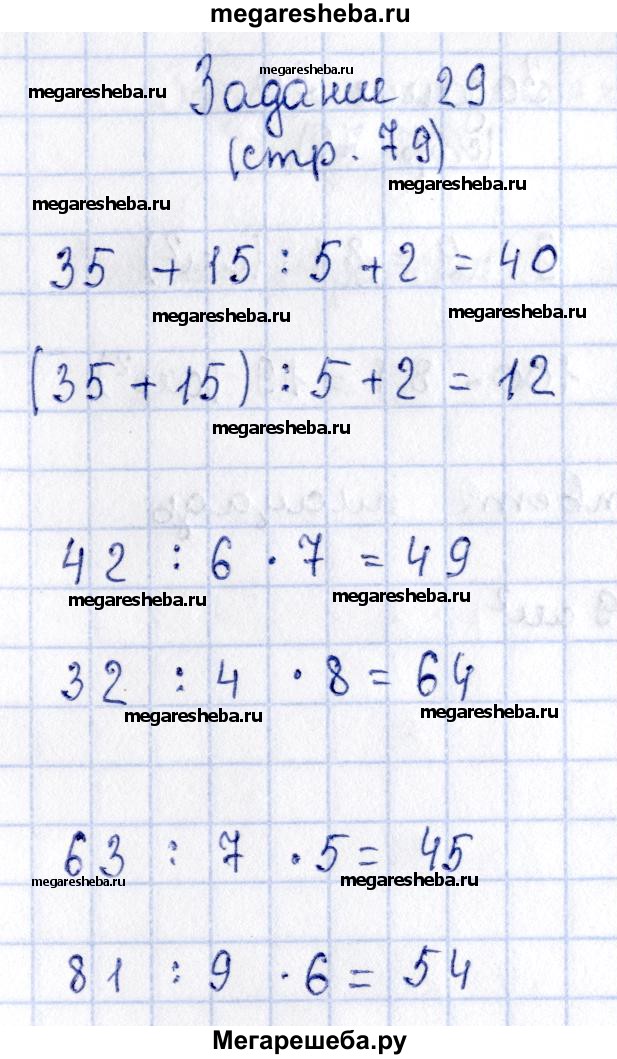 megaresheba.ru
megaresheba.ru
megaresheba.ru
Задание 29
(стр. 79)
megaresheba.ru
megaresheba.ru
35 + 15 : 5 + 2 = 40
megaresheba.ru
megaresheba.ru
(35 + 15) : 5 + 2 = 12
megaresheba.ru
42 : 6 · 7 = 49
megaresheba.ru
megaresheba.ru
32 : 4 · 8 = 64
megaresheba.ru
megaresheba.ru
63 : 7 · 5 = 45
megaresheba.ru
megaresheba.ru
81 : 9 · 6 = 54
Мегарешеба.ру